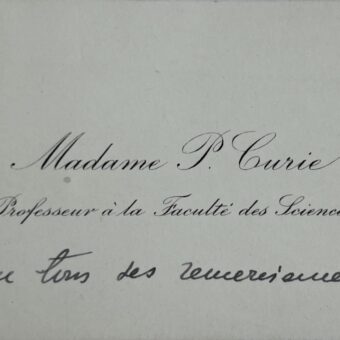 Madame P. Curie
Professeur à la Faculté des Science
tous ses remercieme